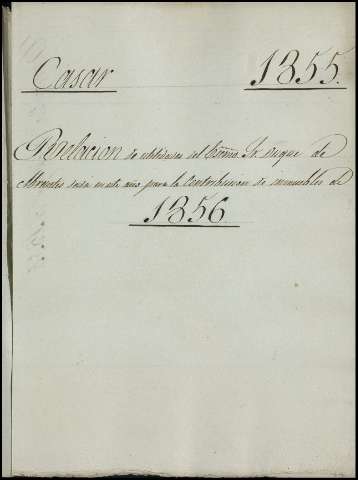 Casar 1855.
Relacion de utilidades del Exmo. Sr. Duque de
Abrantes dada en este año para la Contribucion de inmuebles de
1856